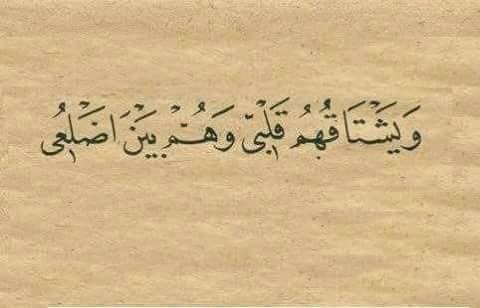 وَيَشْتَاقُهُمُ قَلْبِيّ وَهُمْ بَيْنَ اَضْلَعُى